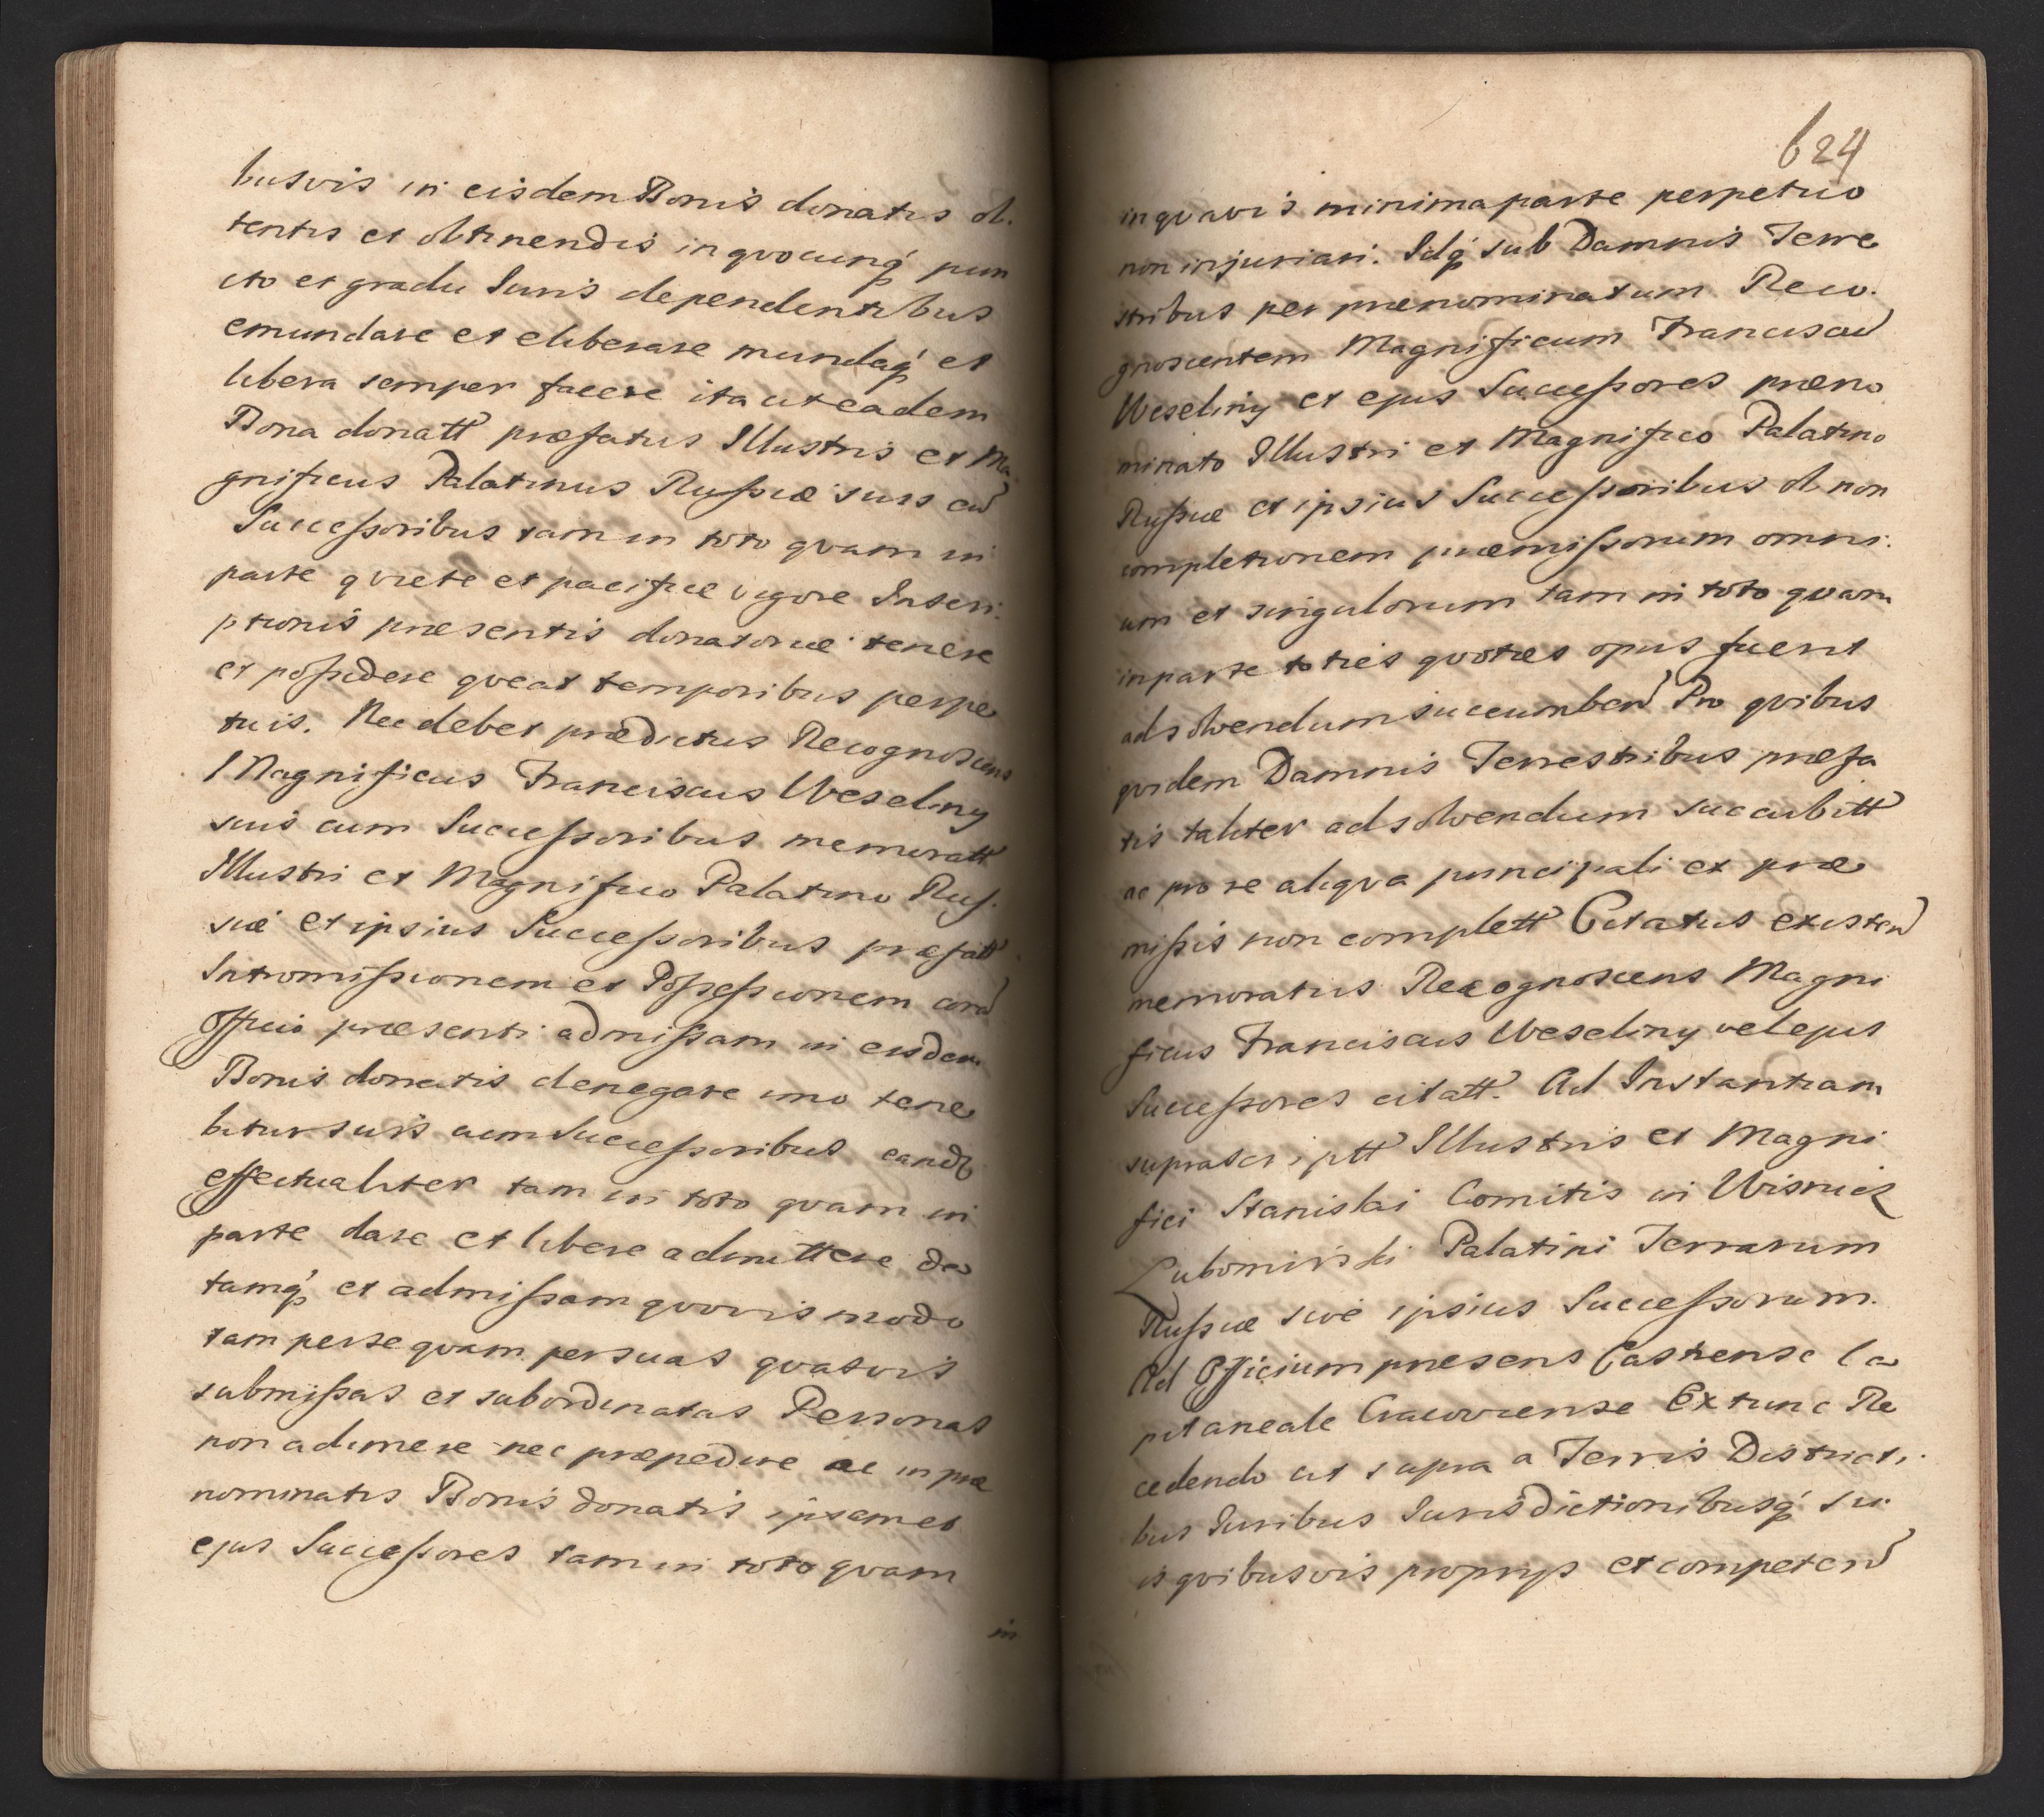 busvis in eisdem Bonis donatis ob.
tentis et obtinendis in qvocunq́ pun
cto et gradu Iuris dependentibus
emundare et eliberare mundaq́ et
libera semper facere ita ut eadem
Bona donatt præfatus Illustris et Ma
gnificus Palatinus Russiæ suis cu
Successoribus tam in toto qvam in
parte qviete et pacifice vigore Inscri.
ptionis præsentis donatoriæ tenere
et possidere qveat temporibus perpe
tuis. Nec debet prædictus Recognoscens
Magnificus Franciscus Weseliny
suis cum Successoribus memoratt
Illustri et Magnifico Palatino Rus.
siæ et ipsius Successoribus præfatt
Intromissionem et Possessionem cora
Officio præsenti admissam in eisdem
Bonis donatis denegare imo tene
bitur suis cum Successoribus eandq
effectualiter tam in toto qvam in
parte dare et libere admittere da
tamq́ et admissam qvovis modo
tam per se qvam per suas qvasvis
submissas et subordinatas Personas
non adimere nec præpedire ac in præ
nominatis Bonis donatis ipsam et
ejus Successores tam in toto qvam
in
624
in qvavis minima parte perpetuo
non injuriari. Idq́ sub Damnis Terre
stribus per prænominatum Reco.
gnoscentem Magnificum Franciscu
Weseliny et ejus Successores præno
minato Illustri et Magnifico Palatino
Russiæ et ipsius Successoribus ob non
completionem præmissorum omni.
um et singulorum tam in toto qvam
in parte toties qvoties opus fuerit
ad solvendum succumben Pro qvibus
qvidem Damnis Terrestribus præfa
tis taliter ad solvendum succubitt
ac pro re aliqva principali ex præ
missis non complett Citatus existen
memoratus Recognoscens Magni
ficus Franciscus Weseliny vel ejus
Successores citatt. Ad Instantiam
suprascriptt Illustris et Magni
fici Stanislai Comitis in Wisnicz
Lubomirski Palatini Terrarum
Russiæ sive ipsius Successorum.
Ad Officium præsens Castrense Ca
pitaneale Cracoviense Ex tunc Re
cedendo ut supra a Terris Districti.
bus Iuribus Iurisdictionibusq́ su.
is qvibusvis proprys et competen